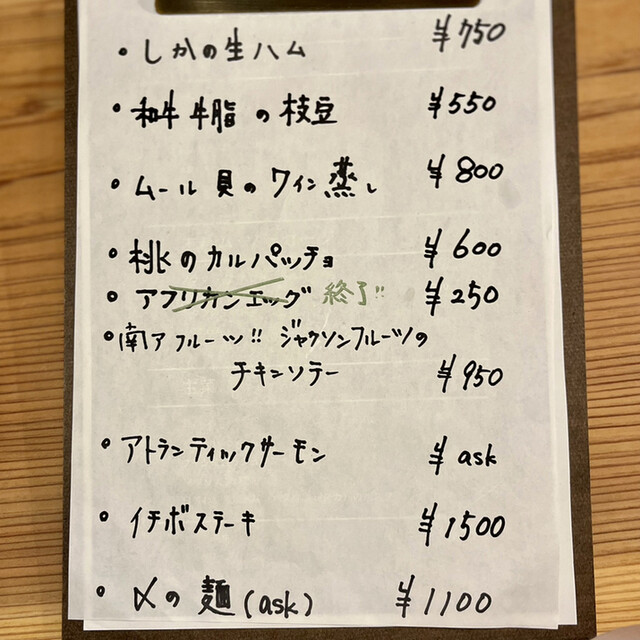 ・しかの生ハム ¥750
・和牛牛脂の枝豆 ¥550
・ムール貝のワイン蒸し ¥800
・桃のカルパッチョ ¥600
・アフリカンエッグ 終了!! ¥250
・南アフルーツ!! ジャクソンフルーツの
チキンソテー ¥950
・アトランティックサーモン ¥ask
・イチボステーキ ¥1500
・〆の麺(ask) ¥1100